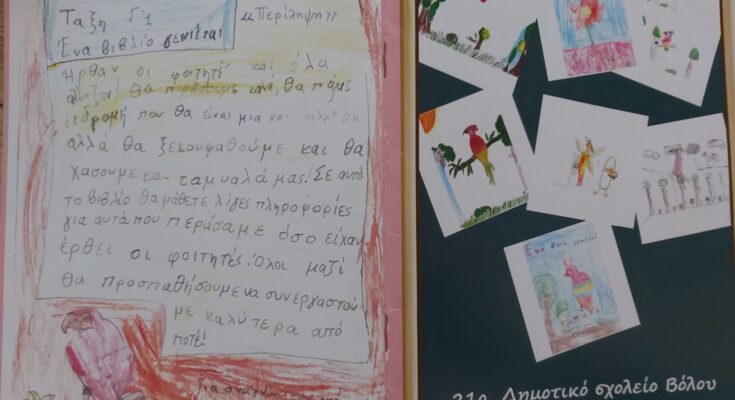 Ταξη Γ'1
«Περίληψη»
Ένα βιβλίο γεννιέται
Ηρθαν οι φοιτητές και όλα
άλλαξαν! θα περάσουμε καλά, θα πάμε
εκδρομή που θα είναι μια και
αλλά θα ξεκουφαθούμε και θα
χασουμε και τα μυαλά μας! Σε αυτό
το βιβλίο θα μάθετε λίγες πληροφορίες
για αυτά που περάσαμε όσο είχαν
έρθει οι φοιτητές. Όλοι μαζί
θα προσπαθήσουμε να συνεργαστού-
με καλύτερα από
ποτέ!
Ένα
21ο Δημοτικό σχολείο Βόλου